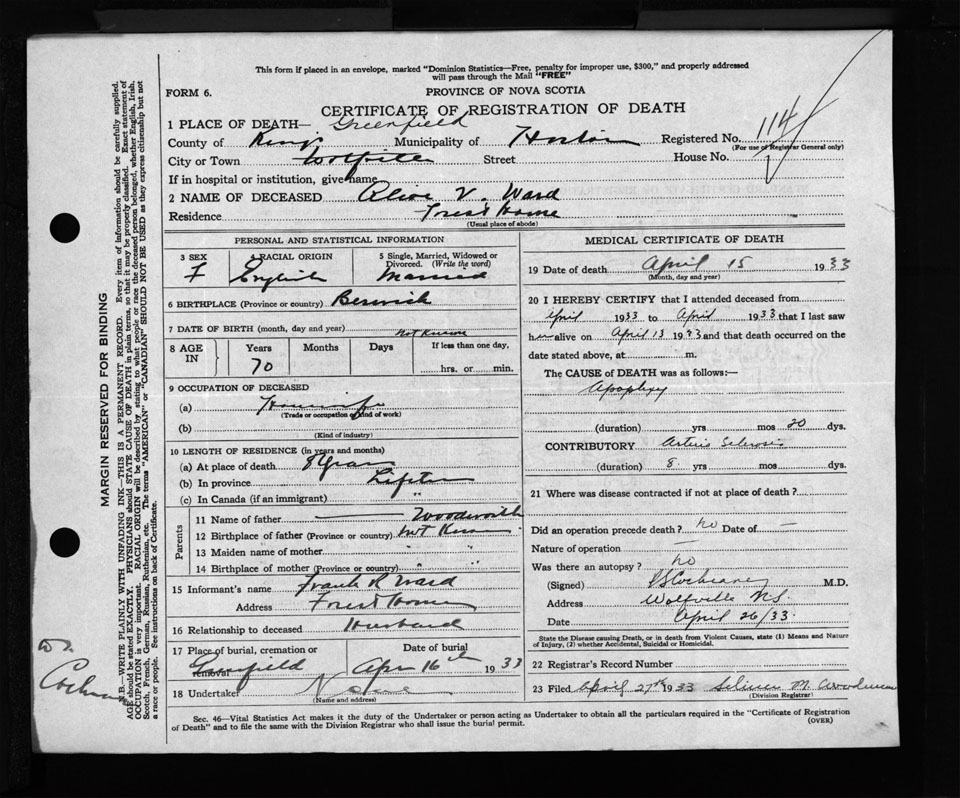 This form if placed in an envelope, marked "Dominion Statistics—Free, penalty for improper use, $300," and properly addressed
will pass through the Mail "FREE"
FORM 6.
PROVINCE OF NOVA SCOTIA
CERTIFICATE OF REGISTRATION OF DEATH
1 PLACE OF DEATH— Greenfield
County of Kings Municipality of Horton Registered No. 114
(For use of Registrar General only)
City or Town Wolfville Street House No.
If in hospital or institution, give name
2 NAME OF DECEASED Alice V. Ward
Residence Forest Home
(Usual place of abode)
PERSONAL AND STATISTICAL INFORMATION
3 SEX
F
4 RACIAL ORIGIN
English
5 Single, Married, Widowed or
Divorced. (Write the word)
Married
6 BIRTHPLACE (Province or country) Berwick
7 DATE OF BIRTH (month, day and year) Not Known
8 AGE IN
Years Months Days If less than one day,
70 hrs. or min.
9 OCCUPATION OF DECEASED
(a) Housewife
(Trade or occupation or kind of work)
(b)
(Kind of industry)
10 LENGTH OF RESIDENCE (in years and months)
(a) At place of death 8 Years
(b) In province Lifetime
(c) In Canada (if an immigrant) "
Parents
11 Name of father Woodworth
12 Birthplace of father (Province or country) Not
13 Maiden name of mother " "
14 Birthplace of mother (Province or country) " "
15 Informant's name Frank R Ward
Address Forest Home
16 Relationship to deceased Husband
17 Place of burial, cremation or removal Greenfield
Date of burial
Apr 16th 1933
18 Undertaker
(Name and address)
MEDICAL CERTIFICATE OF DEATH
19 Date of death April 15 1933
(Month, day and year)
20 I HEREBY CERTIFY that I attended deceased from
April 1933 to April 1933 that I last saw
her alive on April 13 1933 and that death occurred on
date stated above, at m.
The CAUSE of DEATH was as follows:—
Apoplexy
(duration) yrs mos 20 dys.
CONTRIBUTORY Arterio Sclerosis
(duration) 8 yrs mos dys.
21 Where was disease contracted if not at place of death?
Did an operation precede death? No Date of —
Nature of operation —
Was there an autopsy? No
(Signed) Cochrane M.D.
Address Wolfville N.S.
Date April 26/33
State the Disease causing Death, or in death from Violent Causes, state (1) Means and Nature
of Injury, (2) whether Accidental, Suicidal or Homicidal.
22 Registrar's Record Number
23 Filed April 27th 1933 M.
(Division Registrar)
Sec. 46—Vital Statistics Act makes it the duty of the Undertaker or person acting as Undertaker to obtain all the particulars required in the "Certificate of Registration
of Death" and to file the same with the Division Registrar who shall issue the burial permit.
(OVER)
MARGIN RESERVED FOR BINDING
N.B.—WRITE PLAINLY WITH UNFADING INK—THIS IS A PERMANENT RECORD. Every item of information should be carefully supplied.
AGE should be stated EXACTLY. PHYSICIANS should STATE CAUSE OF DEATH in plain terms, so that it may be properly classified. Exact statement of
OCCUPATION is very important. RACIAL ORIGIN will be described by stating to what people or race the deceased person belonged, whether English, Irish,
Scotch, French, German, Russian, Ruthenian, etc. The terms "AMERICAN" or "CANADIAN" SHOULD NOT BE USED as they express citizenship but not
a race or people. See instructions on back of Certificate.
Dr.
Cochrane